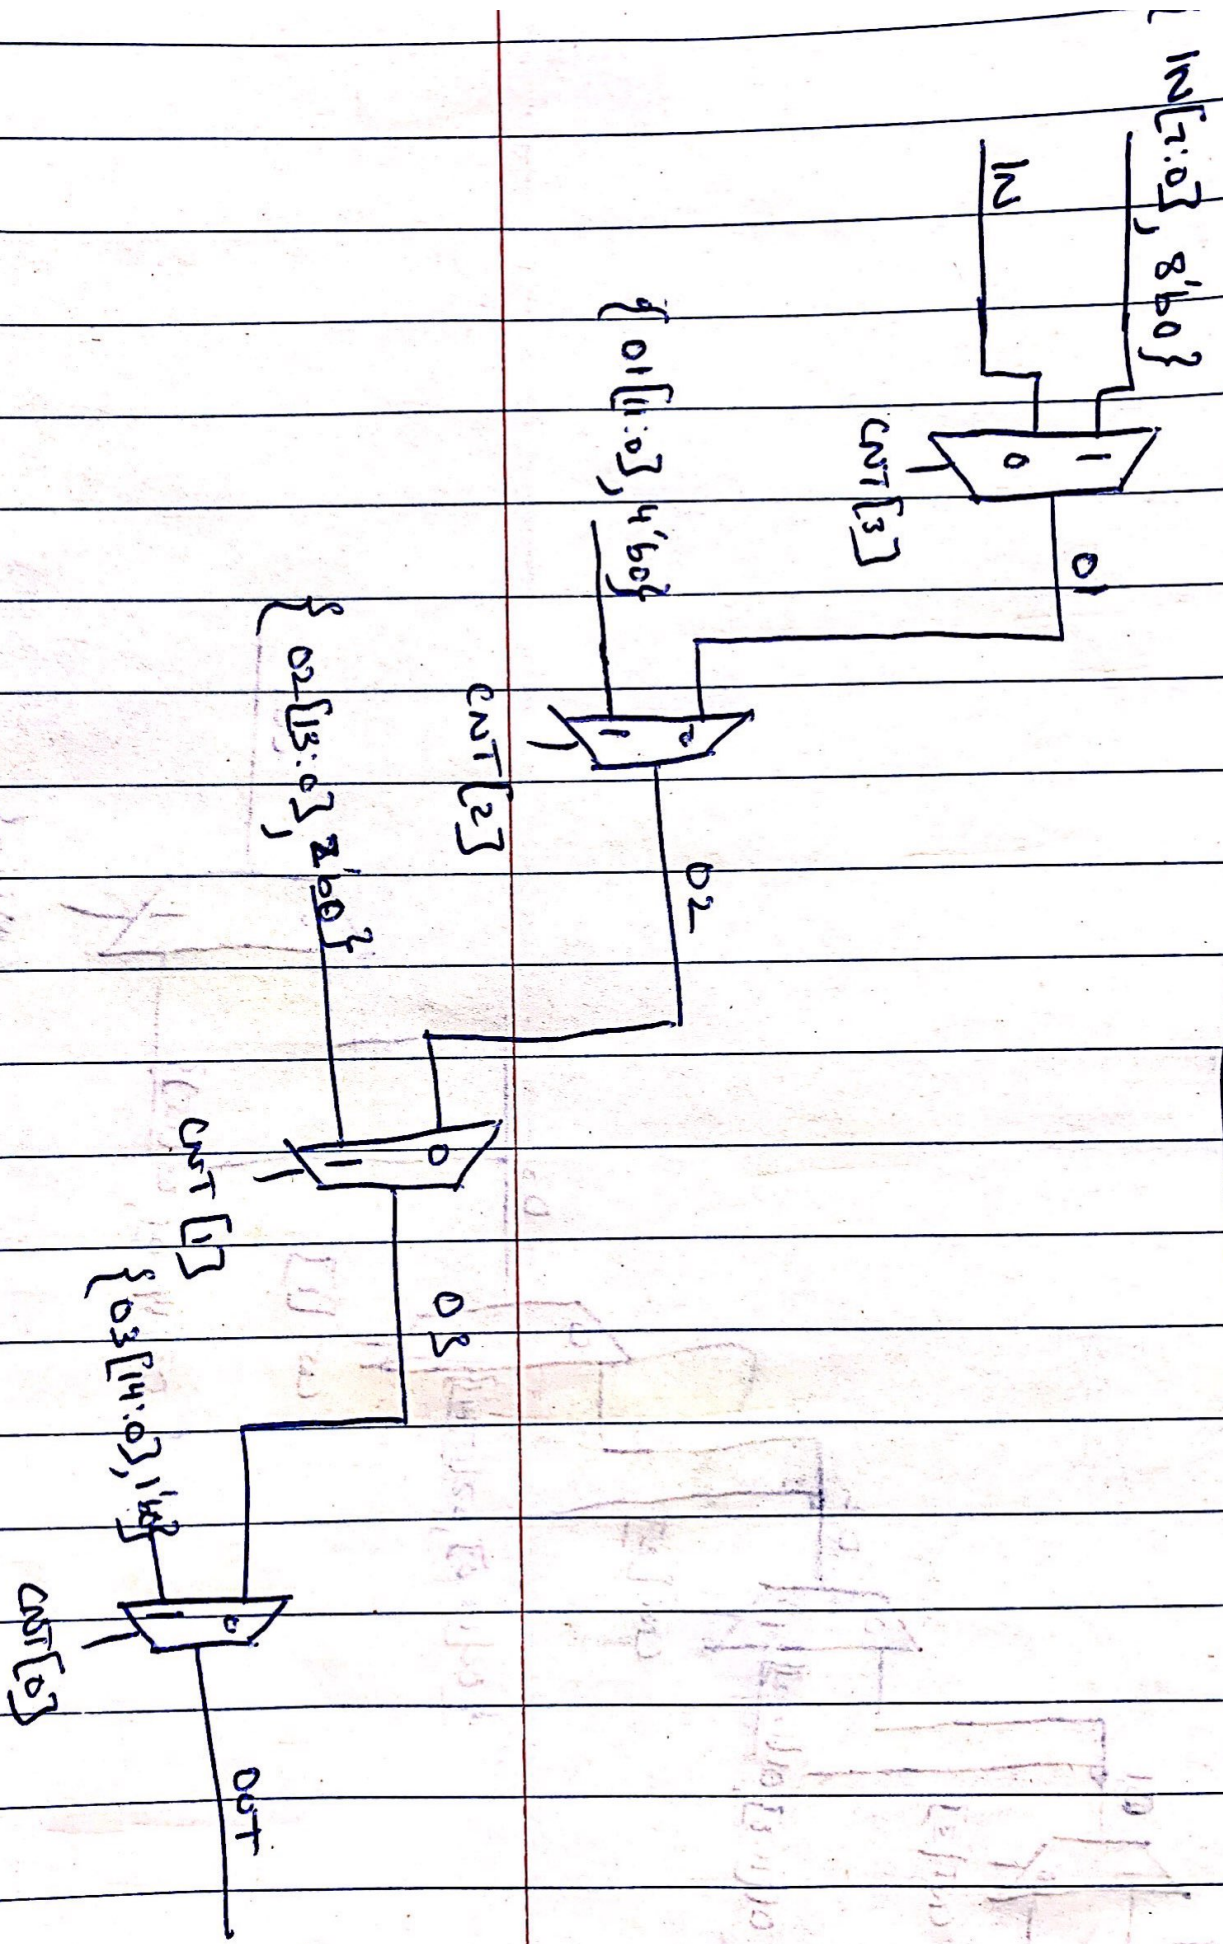 { IN[7:0], 8'b0}
IN
1
0
CNT[3]
O1
{ O1[11:0], 4'b0}
0
1
CNT[2]
O2
{ O2[13:0], 2'b0}
0
1
CNT[1]
O3
{ O3[14:0], 1'b0}
0
1
CNT[0]
OUT